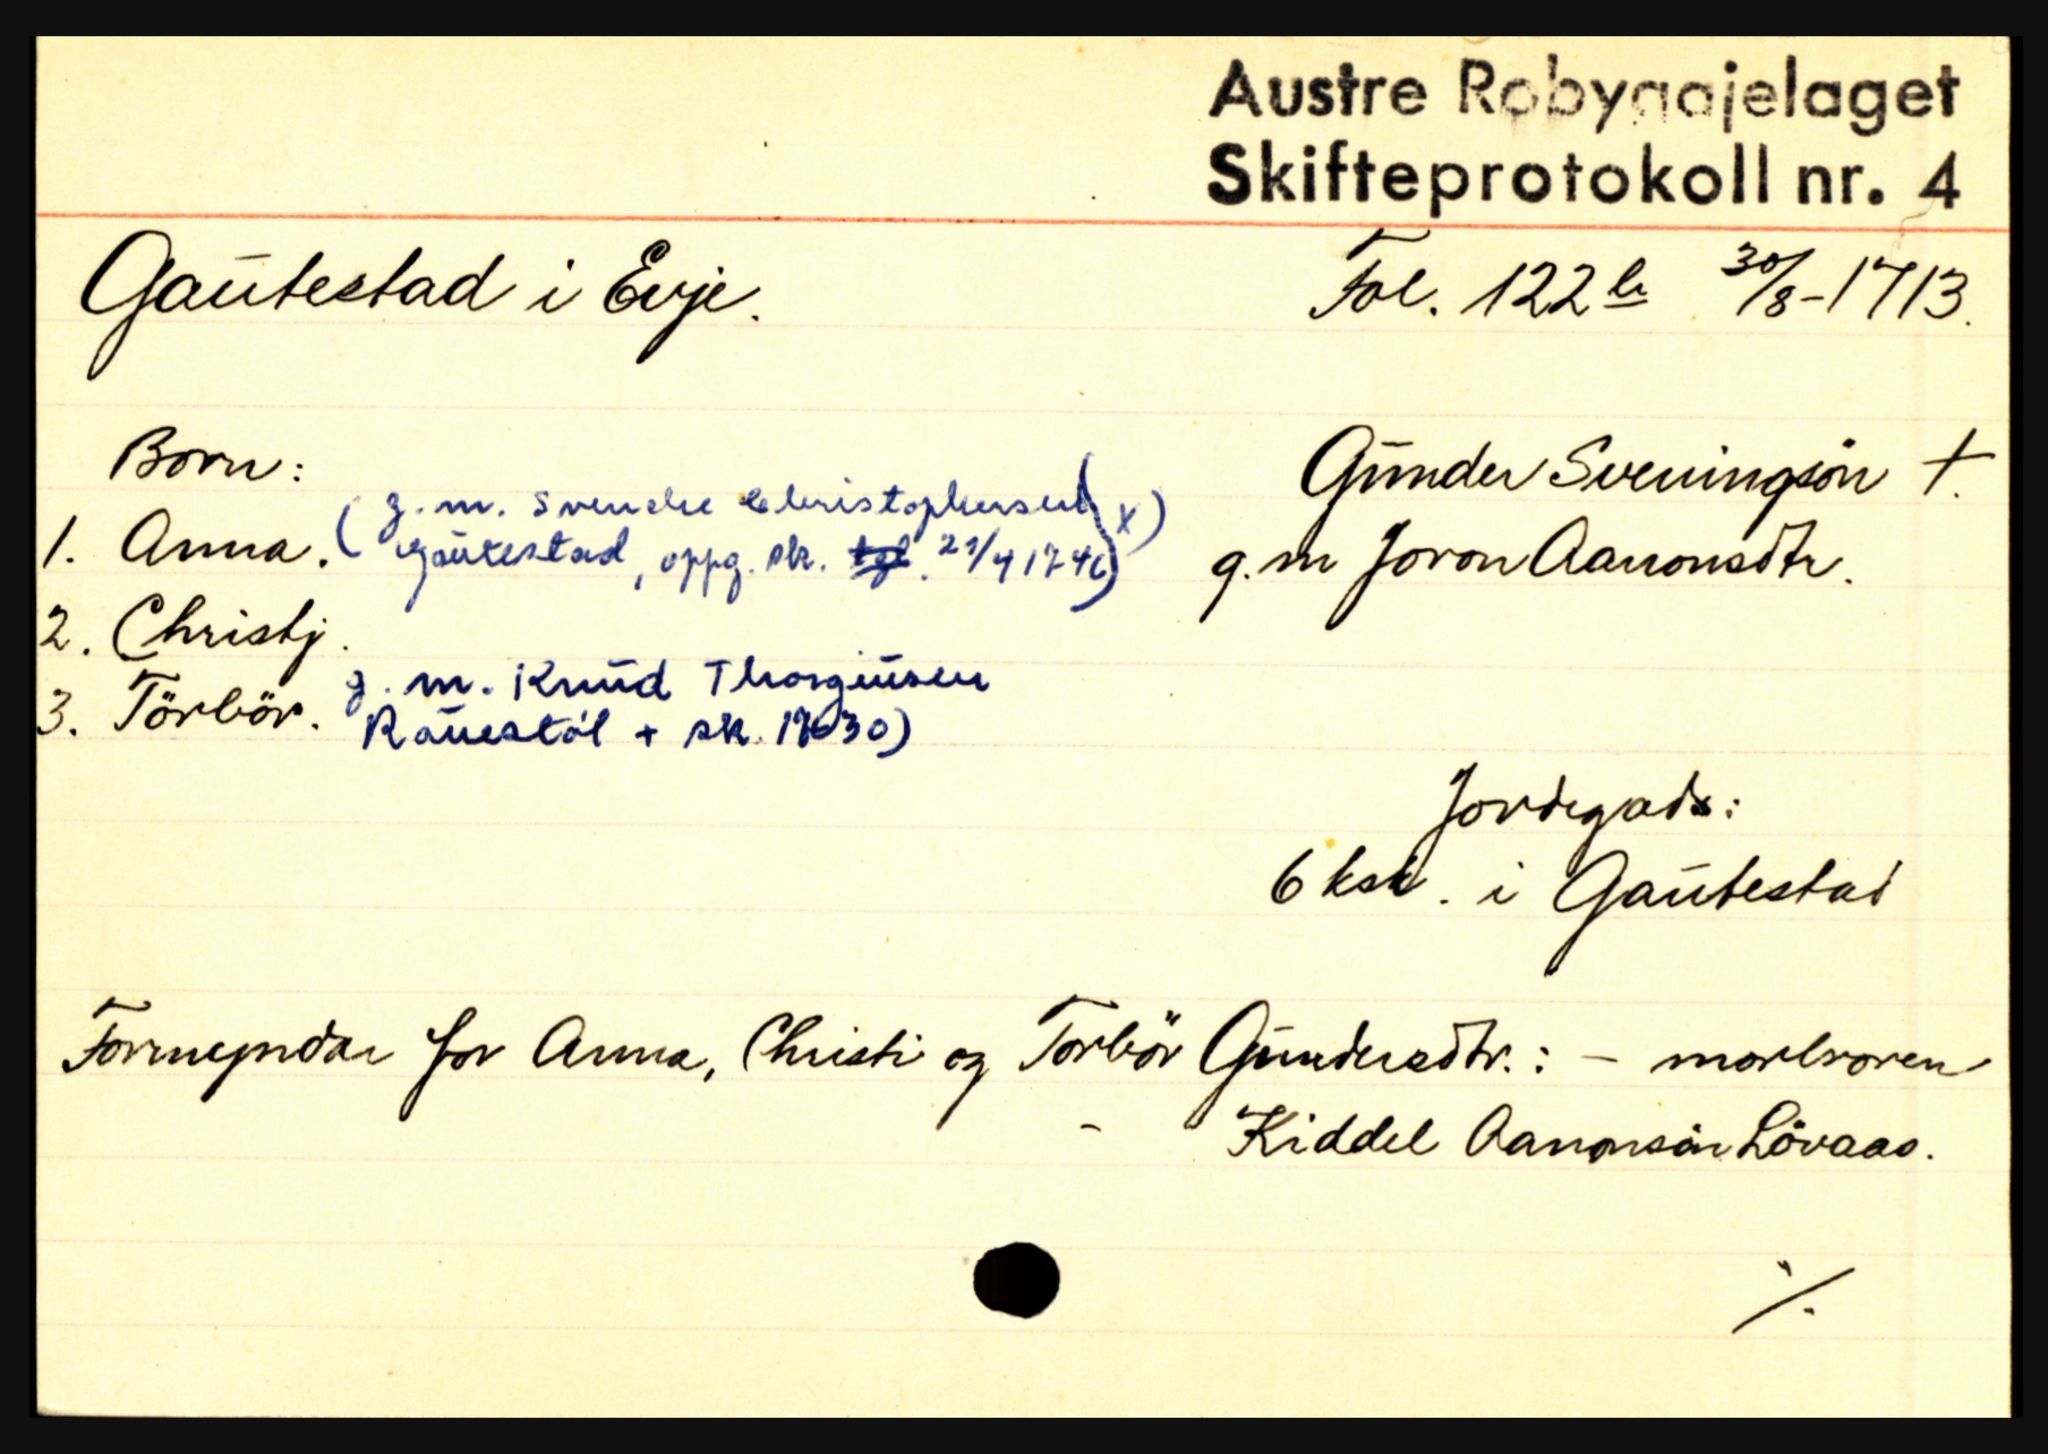 Austre Robyggjelaget
Skifteprotokoll nr. 4
Gautestad i Evje.
Fol. 122 b 30/8-1713.
Born:
Gunder Sveningsön +.
g.m Joron Aanonsdtr.
1. Anna. (g.m. Svenche Christophersen x)
Gautestad, oppg. sk. 21/4 1746)
2. Christj.
3. Törbör. g.m. Knud Thorgiusen
Rauestöl + sk. 1730)
Jordegods:
6 ksk. i Gautestad
Formyndar for Anna, Christi og Torbör Gundersdtr.: - morbroren
- Kiddel Aanonsön Lövaas.
%